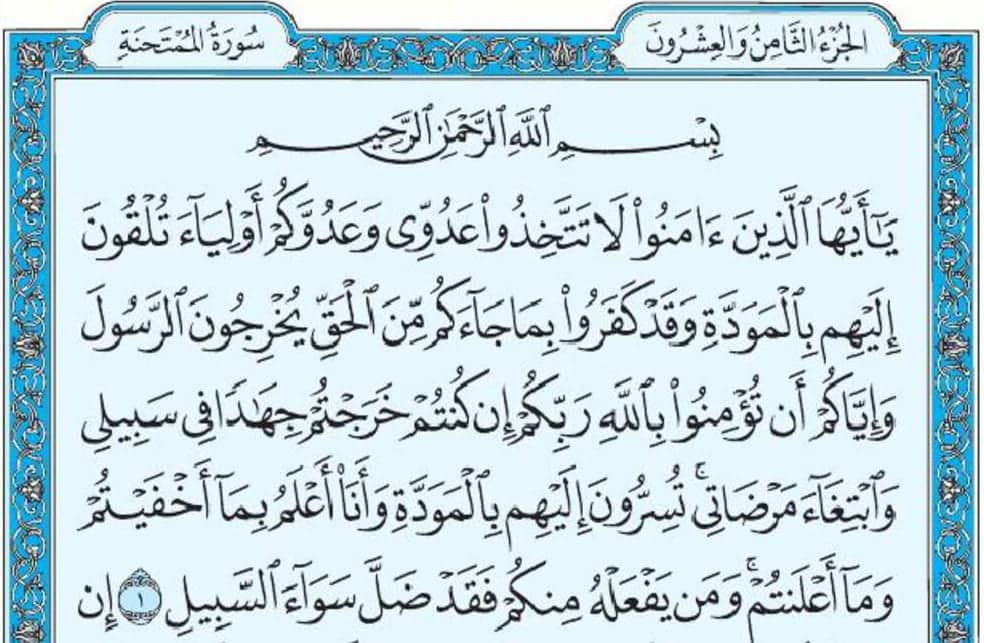 الجُزْءُ الثَّامِنُ وَالعِشْرُونَ
سُورَةُ المُمْتَحنَةِ
بِسْمِ ٱللَّهِ ٱلرَّحْمَٰنِ ٱلرَّحِيمِ
يَٰٓأَيُّهَا ٱلَّذِينَ ءَامَنُوا۟ لَا تَتَّخِذُوا۟ عَدُوِّى وَعَدُوَّكُمْ أَوْلِيَآءَ تُلْقُونَ
إِلَيْهِم بِٱلْمَوَدَّةِ وَقَدْ كَفَرُوا۟ بِمَا جَآءَكُم مِّنَ ٱلْحَقِّ يُخْرِجُونَ ٱلرَّسُولَ
وَإِيَّاكُمْ أَن تُؤْمِنُوا۟ بِٱللَّهِ رَبِّكُمْ إِن كُنتُمْ خَرَجْتُمْ جِهَٰدًا فِى سَبِيلِى
وَٱبْتِغَآءَ مَرْضَاتِى ۚ تُسِرُّونَ إِلَيْهِم بِٱلْمَوَدَّةِ وَأَنَا۠ أَعْلَمُ بِمَآ أَخْفَيْتُمْ
وَمَآ أَعْلَنتُمْ ۚ وَمَن يَفْعَلْهُ مِنكُمْ فَقَدْ ضَلَّ سَوَآءَ ٱلسَّبِيلِ ١ إِن